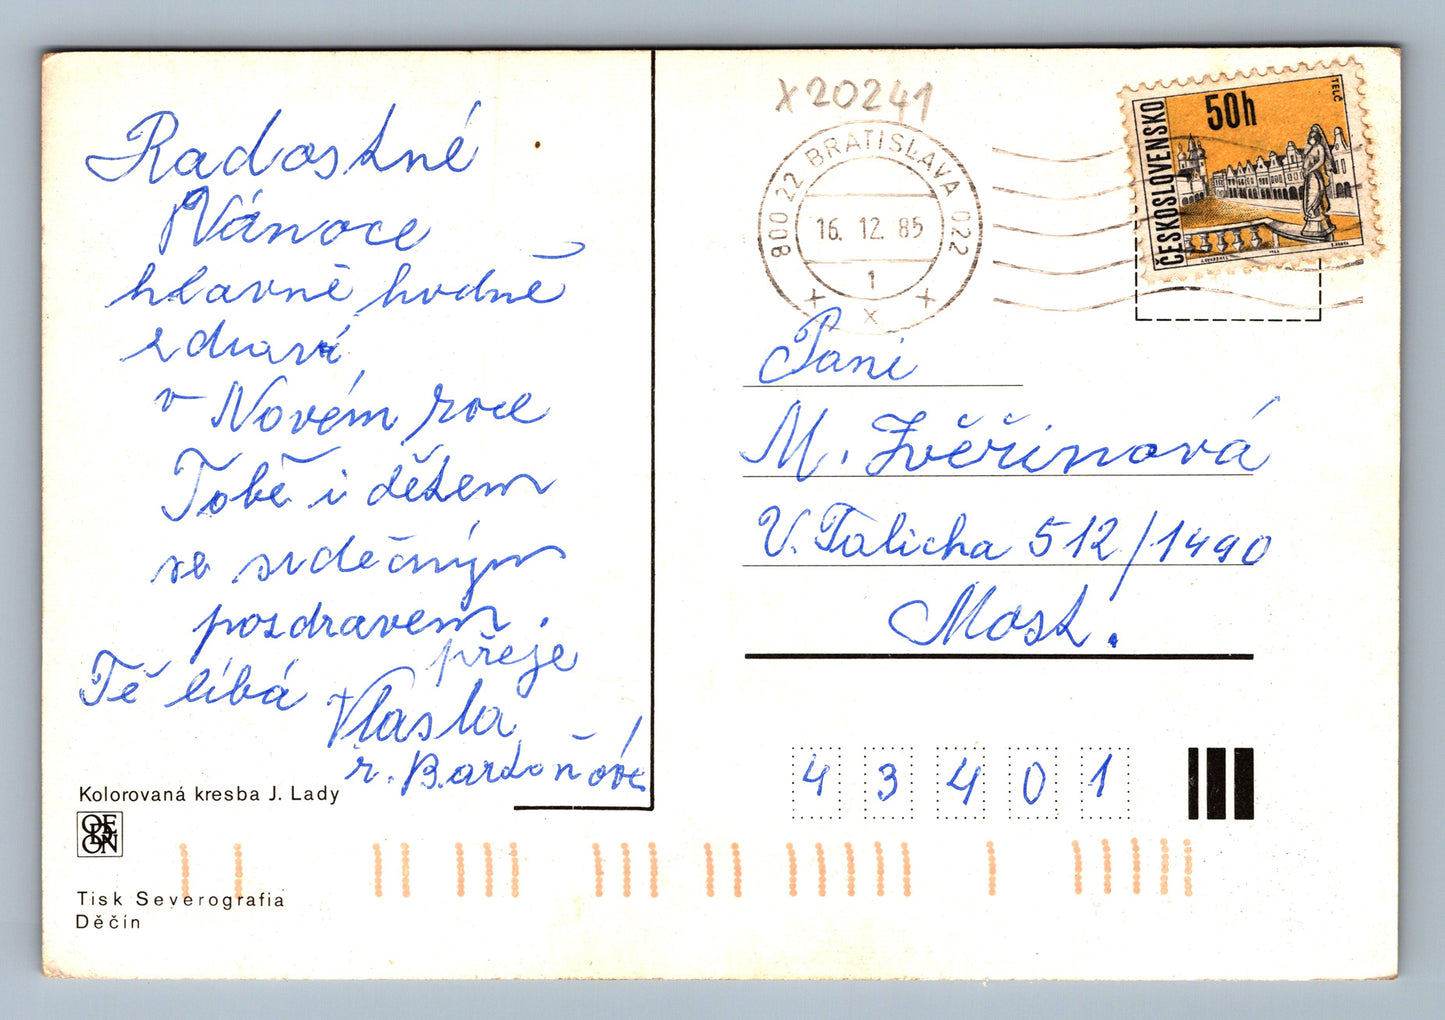 Radostné
Vánoce
hlavně hodně
zdraví
v Novém roce
Tobě i dětem
se srdečným
pozdravem.
přeje
Tě líbá
Vlasta
r. Bartoňové
Kolorovaná kresba J. Lady
ODEON
Tisk Severografia
Děčín
X20241
800 22 BRATISLAVA 022
16. 12. 85
1
x
ČESKOSLOVENSKO
50h
TELČ
Paní
M. Zvěřinová
V. Talicha 512/1490
Most.
43401